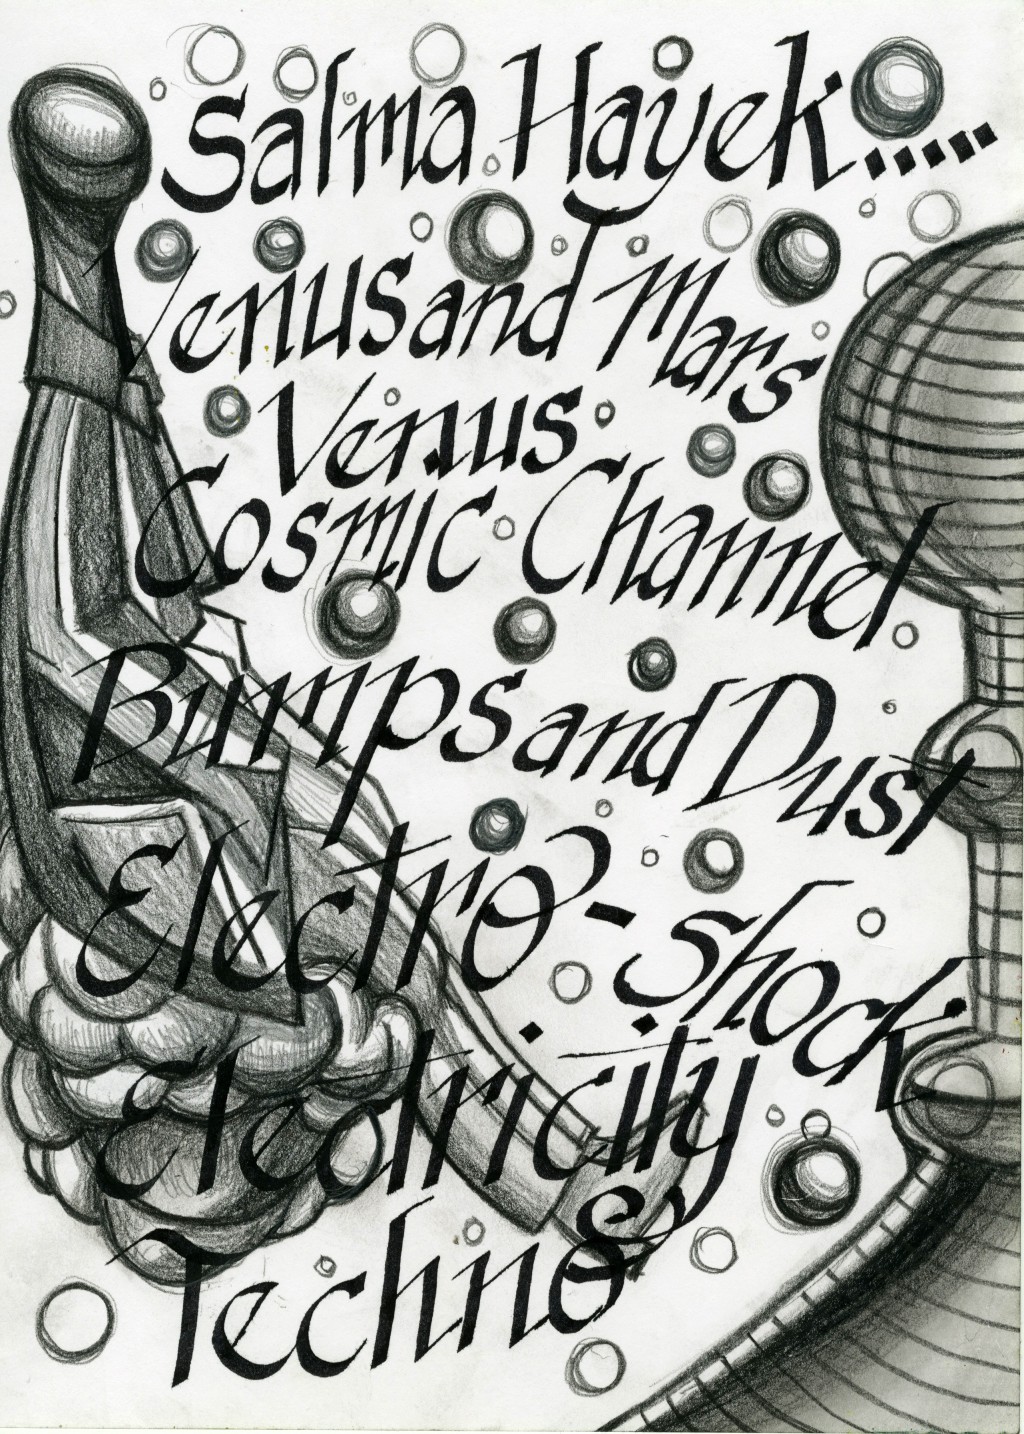 Salma Hayek.....
Venus and Mars
Venus
Cosmic Channel
Bumps and Dust
Electro-shock
Electricity
Techno